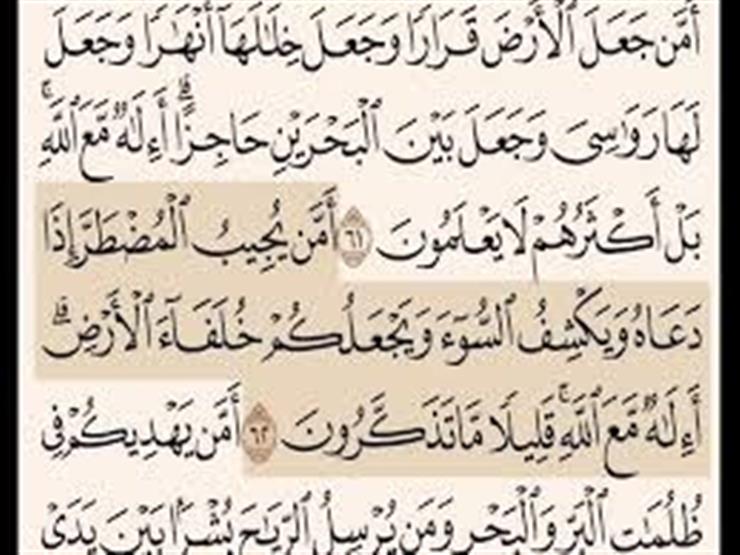 أَمَّن جَعَلَ ٱلْأَرْضَ قَرَارًا وَجَعَلَ خِلَٰلَهَآ أَنْهَٰرًا وَجَعَلَ
لَهَا رَوَٰسِىَ وَجَعَلَ بَيْنَ ٱلْبَحْرَيْنِ حَاجِزًا ۗ أَءِلَٰهٌ مَّعَ ٱللَّهِ ۚ
بَلْ أَكْثَرُهُمْ لَا يَعْلَمُونَ ٦١ أَمَّن يُجِيبُ ٱلْمُضْطَرَّ إِذَا
دَعَاهُ وَيَكْشِفُ ٱلسُّوٓءَ وَيَجْعَلُكُمْ خُلَفَآءَ ٱلْأَرْضِ ۗ
أَءِلَٰهٌ مَّعَ ٱللَّهِ ۚ قَلِيلًا مَّا تَذَكَّرُونَ ٦٢ أَمَّن يَهْدِيكُمْ فِى
ظُلُمَٰتِ ٱلْبَرِّ وَٱلْبَحْرِ وَمَن يُرْسِلُ ٱلرِّيَٰحَ بُشْرًۢا بَيْنَ يَدَىْ